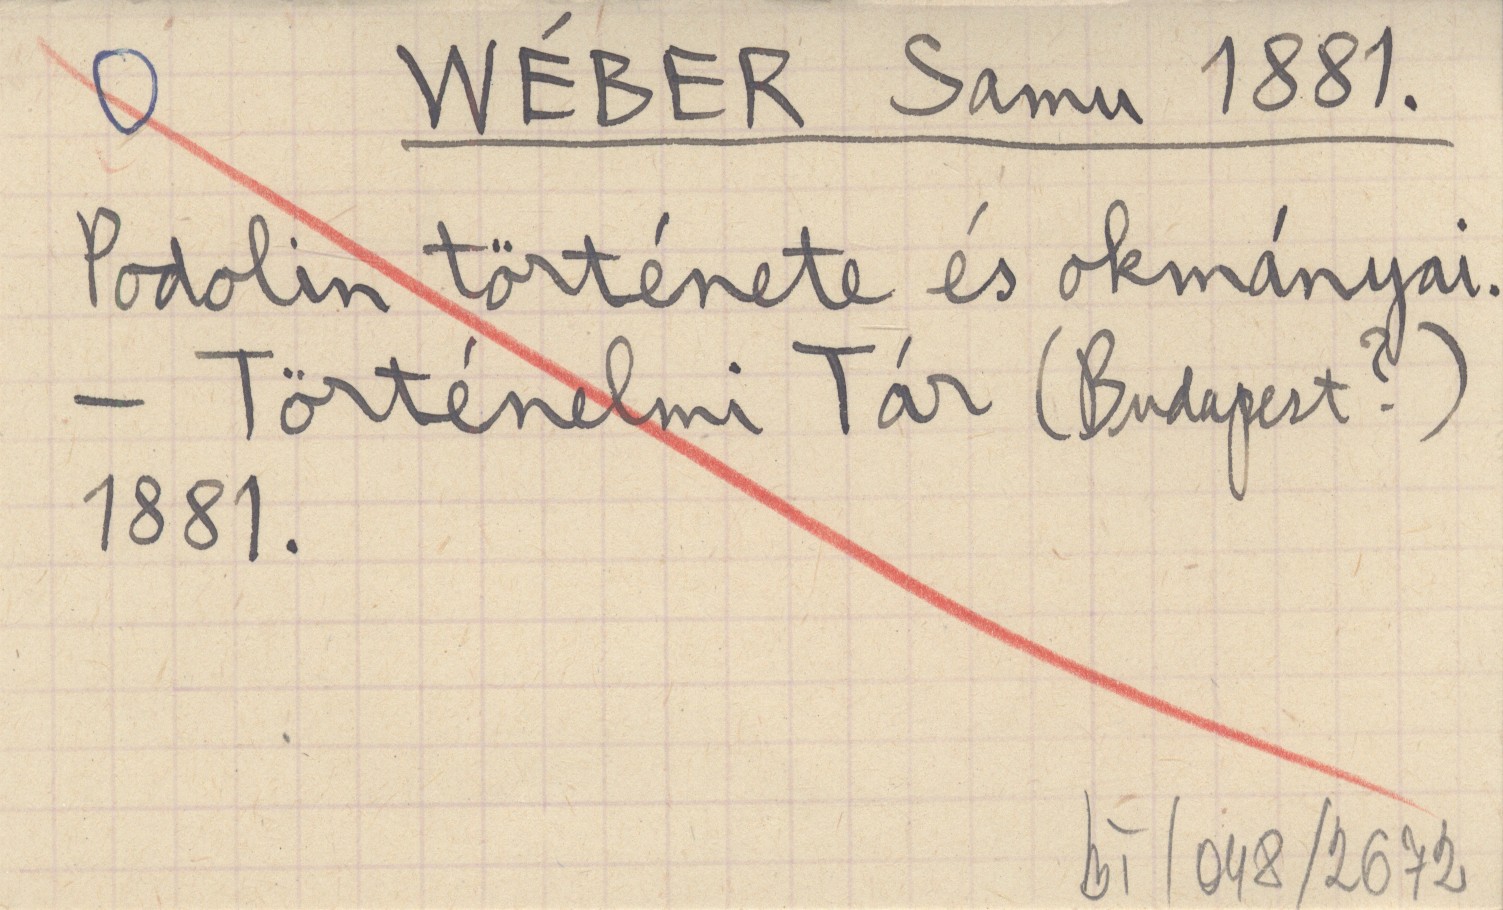 WÉBER Samu 1881.
Podolin története és okmányai.
— Történelmi Tár (Budapest?)
1881.
/048/2672